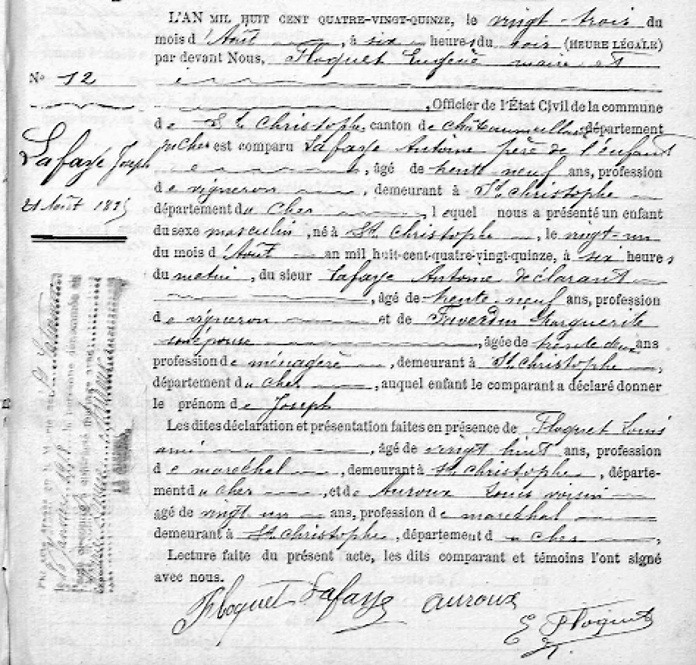 L'AN MIL HUIT CENT QUATRE-VINGT-QUINZE, le vingt-trois du
mois d'Août, à six heures du soir (HEURE LÉGALE)
par devant Nous, Floquet Eugène maire et
N° 12
, Officier de l'État Civil de la commune
de St Christophe, canton de Chateaumeillant département
Lafaye Joseph
du Cher est comparu Lafaye Antoine père de l'enfant
, âgé de trente neuf ans, profession
21 Août 1895
de vigneron, demeurant à St Christophe
département du Cher, lequel nous a présenté un enfant
du sexe masculin, né à St Christophe, le vingt-un
du mois d'Août an mil huit-cent-quatre-vingt-quinze, à six heures
du matin, du sieur Lafaye Antoine déclarant
, âgé de trente-neuf ans, profession
de vigneron et de Marguerite
son épouse, âgée de trente deux ans
profession de ménagère, demeurant à St Christophe,
département du Cher, auquel enfant le comparant a déclaré donner
le prénom de Joseph
Les dites déclaration et présentation faites en présence de Floquet Louis
ami, âgé de vingt huit ans, profession
de maréchal, demeurant à St Christophe, départe-
ment du Cher, et de Auroux Louis voisin
âgé de vingt un ans, profession de maréchal
demeurant à St Christophe, département du Cher,
Lecture faite du présent acte, les dits comparant et témoins l'ont signé
avec nous.
Floquet Lafaye auroux
E Floquet